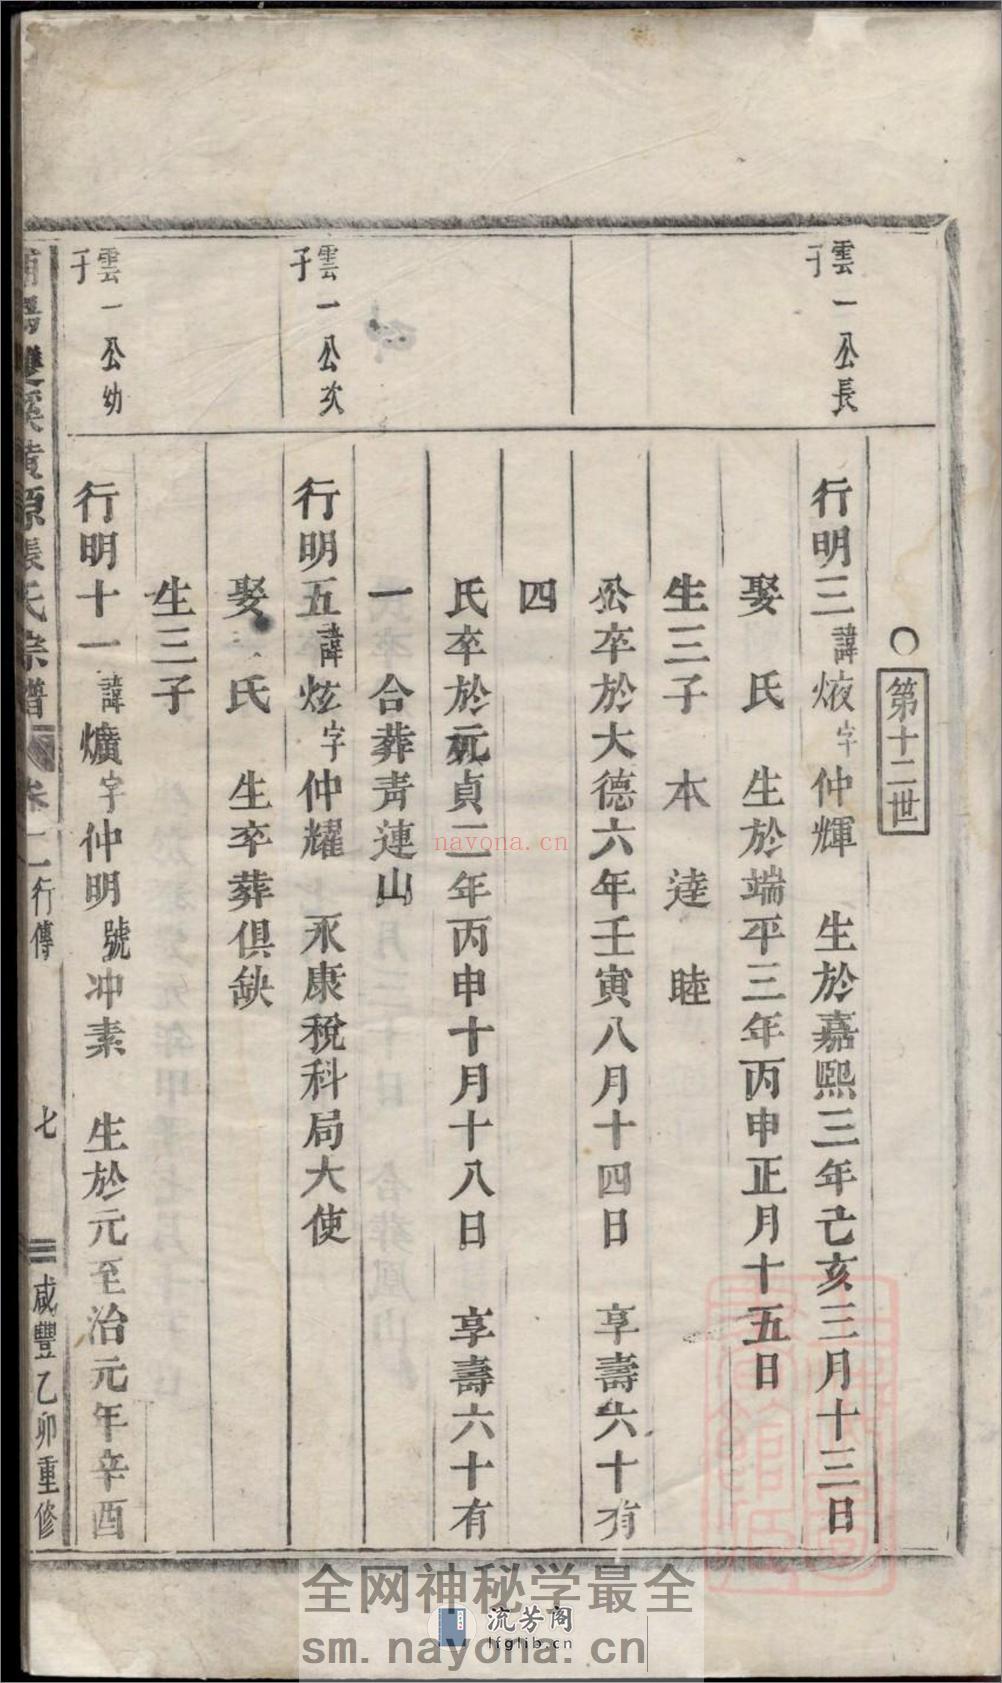 ○第十二世
雲一公長子
行明三諱焲字仲輝　生於嘉熙三年己亥三月十三日
娶　氏　生於端平三年丙申正月十五日
生三子　本　逵　睦
公卒於大德六年壬寅八月十四日　享壽六十有
四
氏卒於元貞二年丙申十月十八日　享壽六十有
一　合葬青連山
雲一公次子
行明五諱炫字仲耀　永康稅科局大使
娶　氏　生卒葬俱缺
生三子
雲一公幼子
行明十一諱爌字仲明號冲素　生於元至治元年辛酉
雙溪黄源張氏宗譜　卷二行傳　七　咸豐乙卯重修
nayona.cn
全网神秘学最全
流芳阁
lfglib.cn
sm.nayona.cn